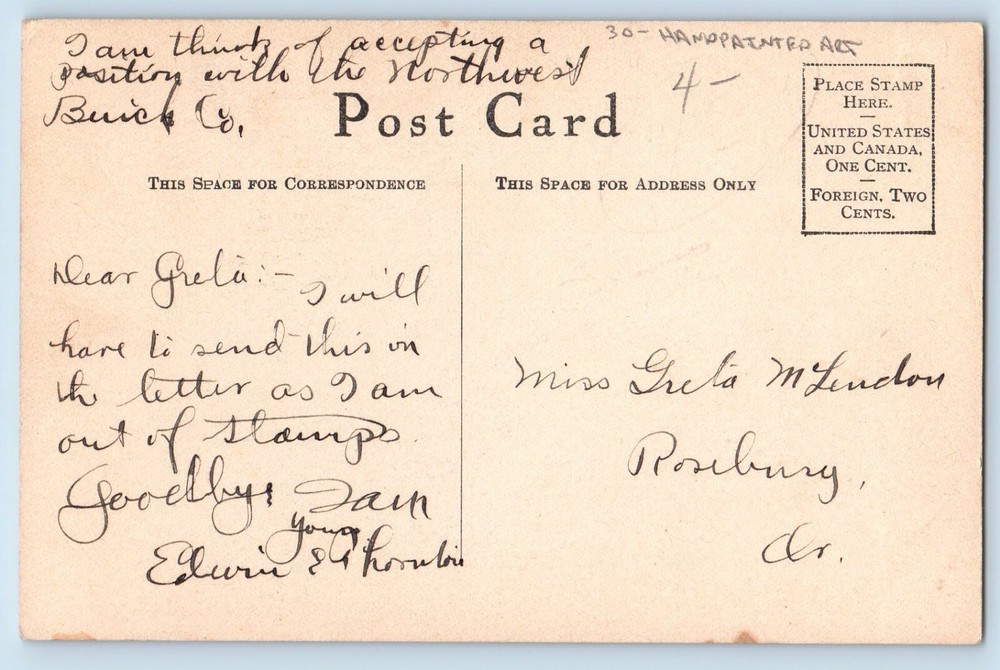 I am think of accepting a
position with the Northwest
Buick Co.
30- HANDPAINTED ART
4-
Post Card
PLACE STAMP
HERE.
UNITED STATES
AND CANADA,
ONE CENT.
FOREIGN, TWO
CENTS.
THIS SPACE FOR CORRESPONDENCE
THIS SPACE FOR ADDRESS ONLY
Dear Greta:-
I will
have to send this in
the letter as I am
out of stamps.
Goodbye I am
yours
Edwin E Thornton
Miss Greta McLendon
Roseburg,
Or.